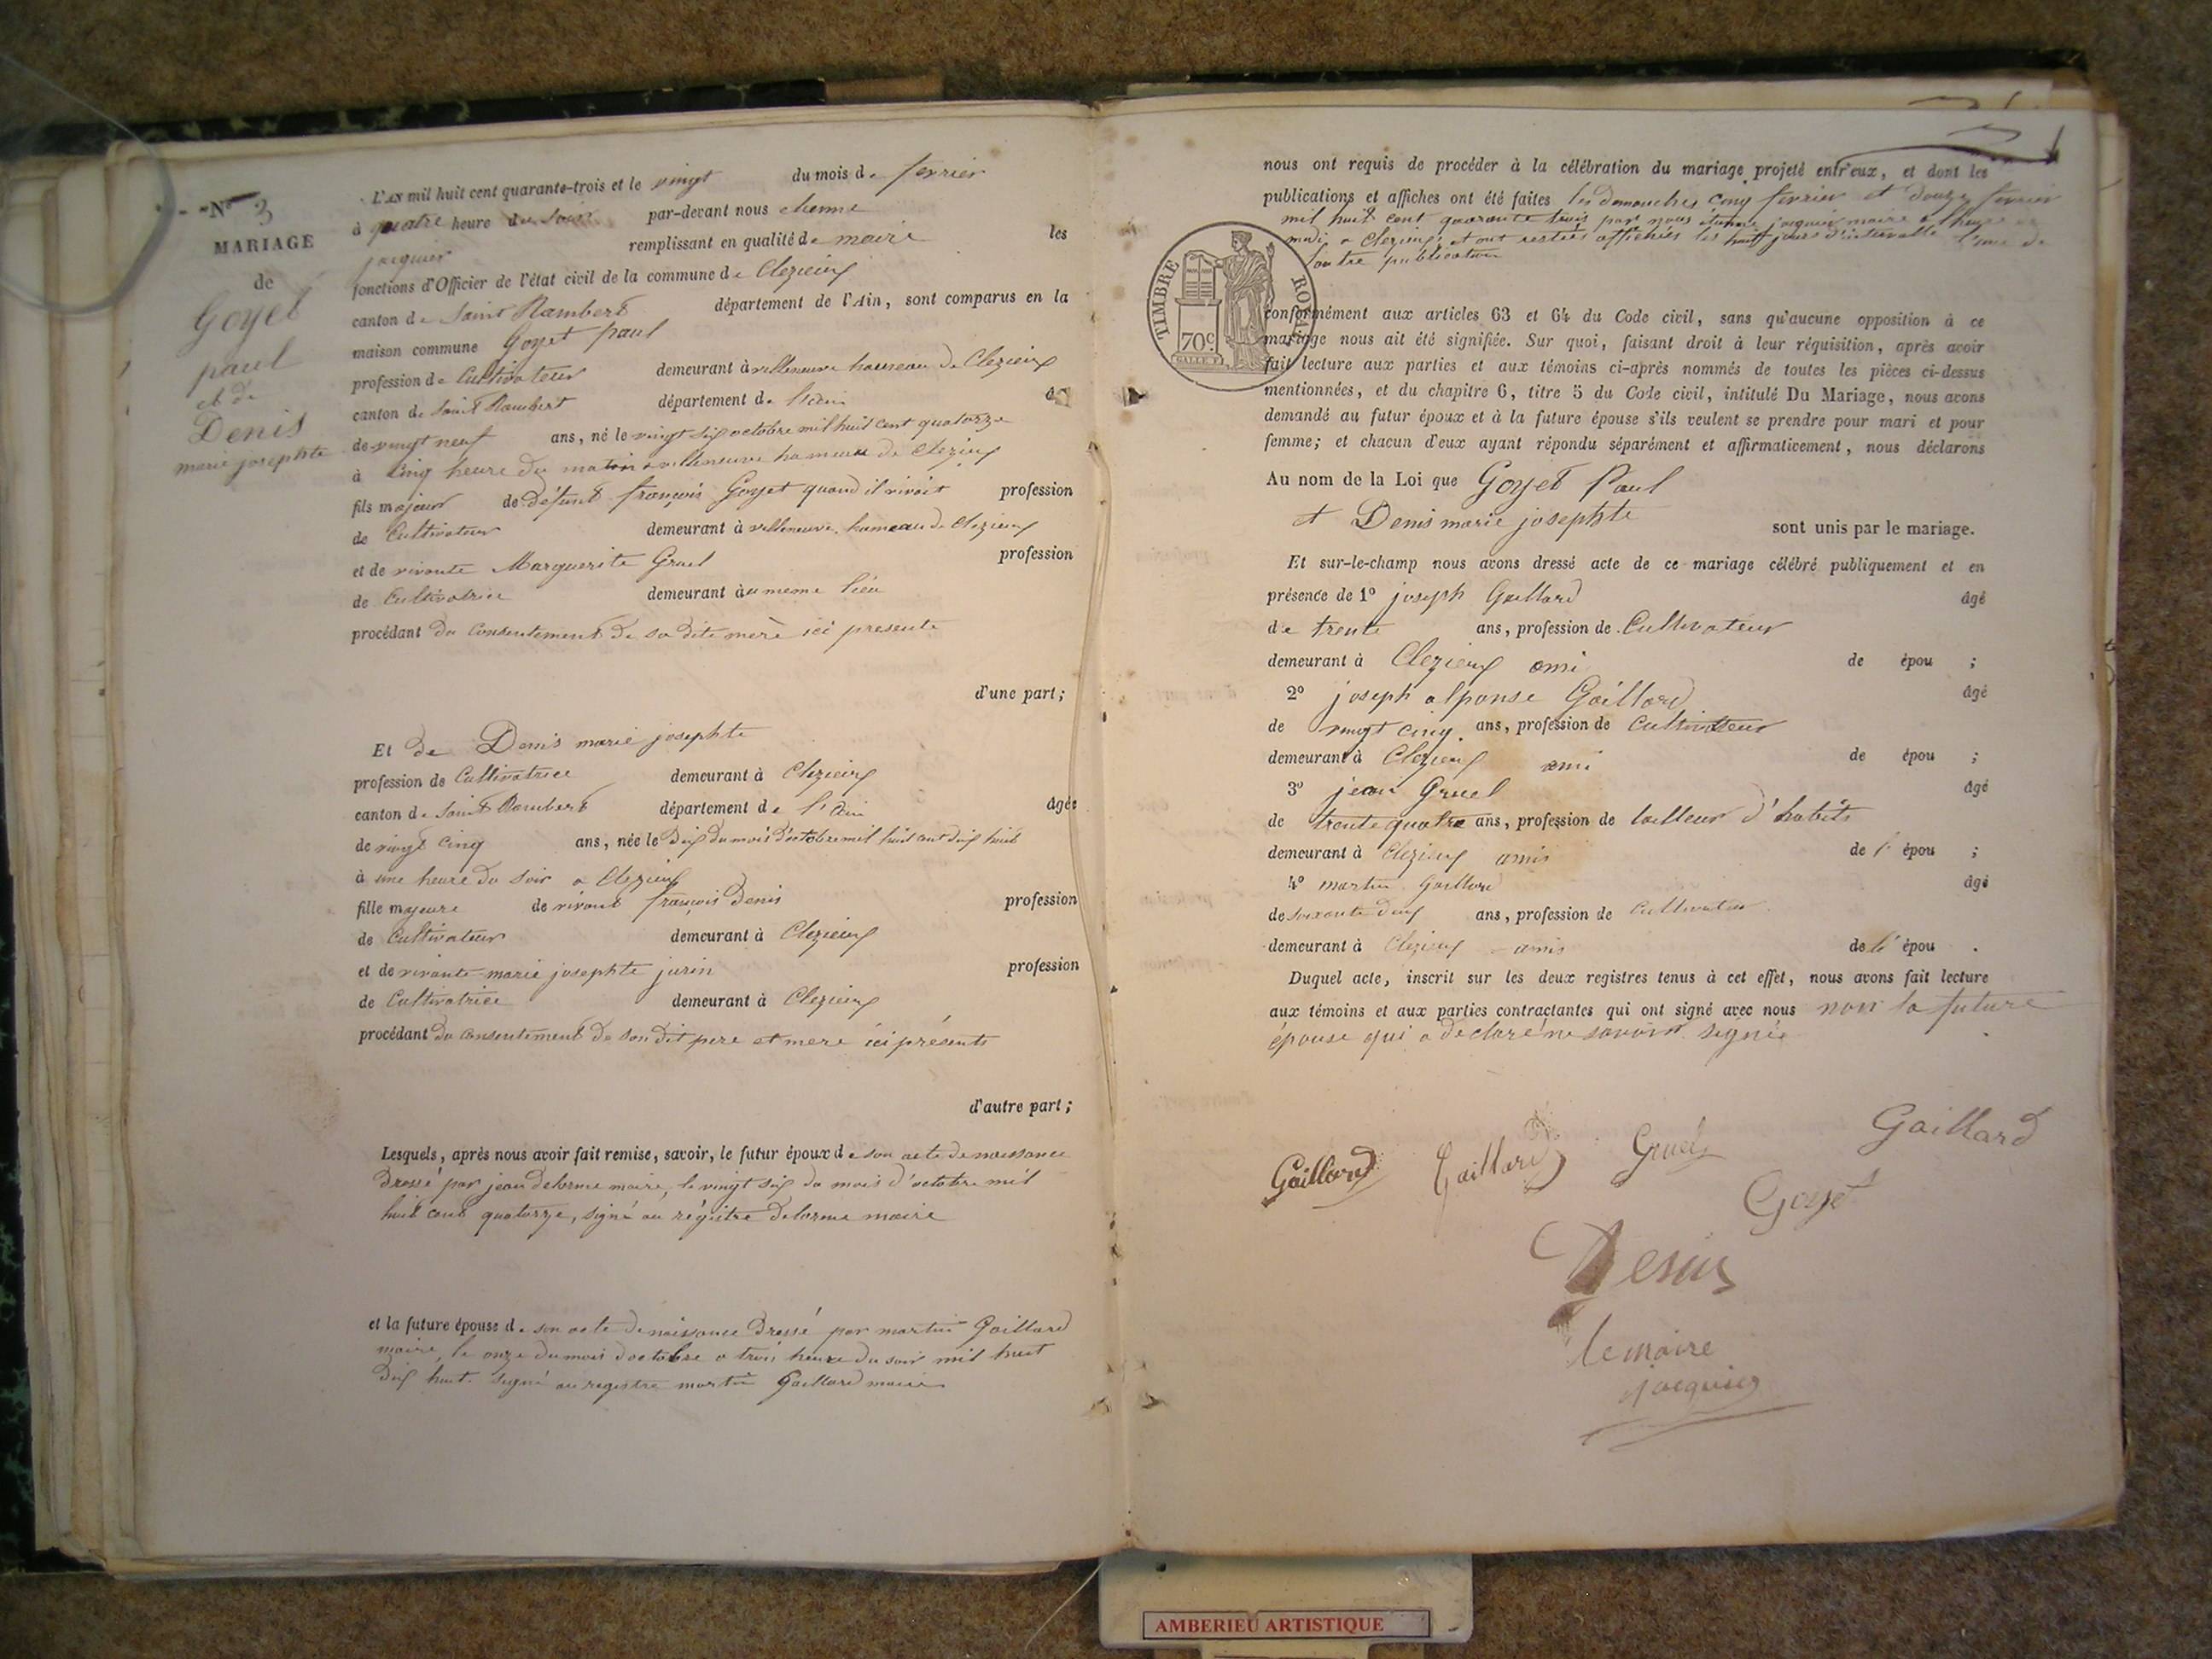 Nº 3
MARIAGE
de
Goyet
paul
et de
Denis
marie josephte
L'AN mil huit cent quarante-trois et le vingt du mois de fevrier
à quatre heure du soir par-devant nous etienne
jacquier remplissant en qualité de maire les
fonctions d'Officier de l'état civil de la commune de Clezieux
canton de Saint Rambert département de l'Ain, sont comparus en la
maison commune Goyet paul
profession de Cultivateur demeurant à villeneuve hameau de Clezieux
canton de Saint Rambert département de l'ain
de vingt neuf ans, né le vingt six octobre mil huit cent quatorze
à cinq heure du matin a villeneuve hameau de Clezieux
fils majeur de défunt françois Goyet quand il vivoit profession
de Cultivateur demeurant à villeneuve hameau de Clezieux
et de vivante Marguerite Gruel profession
de Cultivatrice demeurant au meme lieu
procédant du Consentement de sa dite mère ici presente
d'une part;
Et de Denis marie josephte
profession de Cultivatrice demeurant à Clezieux
canton de Saint Rambert département de l'Ain âgée
de vingt cinq ans, née le dix du mois d'octobre mil huit cent dix huit
à une heure du soir a Clezieux
fille majeure de vivant françois Denis profession
de Cultivateur demeurant à Clezieux
et de vivante marie josephte jurin profession
de Cultivatrice demeurant à Clezieux
procédant du consentement de son dit pere et mere ici présents
d'autre part;
Lesquels, après nous avoir fait remise, savoir, le futur époux de son acte de naissance
dressé par jean delorme maire, le vingt six du mois d'octobre mil
huit cent quatorze, signé au régistre Delorme maire
et la future épouse de son acte de naissance dressé par martin Gaillard
maire, le onze du mois d'octobre a trois heure du soir mil huit
dix huit. signé au registre martin Gaillard maire
nous ont requis de procéder à la célébration du mariage projeté entr'eux, et dont les
publications et affiches ont été faites les dimanches cinq fevrier et douze fevrier
mil huit cent quarante trois par nous etienne jacquier maire a heure de
midi a Clezieux et ont restées affichées les huit jours d'intervalle l'une de
l'autre publication
TIMBRE ROYAL
70c
conformément aux articles 63 et 64 du Code civil, sans qu'aucune opposition à ce
mariage nous ait été signifiée. Sur quoi, faisant droit à leur réquisition, après avoir
fait lecture aux parties et aux témoins ci-après nommés de toutes les pièces ci-dessus
mentionnées, et du chapitre 6, titre 5 du Code civil, intitulé Du Mariage, nous avons
demandé au futur époux et à la future épouse s'ils veulent se prendre pour mari et pour
femme; et chacun d'eux ayant répondu séparément et affirmativement, nous déclarons
Au nom de la Loi que Goyet Paul
et Denis marie josephte sont unis par le mariage.
Et sur-le-champ nous avons dressé acte de ce mariage célébré publiquement et en
présence de 1º joseph Gaillard âgé
de trente ans, profession de Cultivateur
demeurant à Clezieux ami de épou ;
2º joseph alponse Gaillard âgé
de vingt cinq ans, profession de Cultivateur
demeurant à Clezieux ami de épou ;
3º jean Gruel âgé
de trente quatre ans, profession de tailleur d'habits
demeurant à Clezieux amis de l' épou ;
4º martin Gaillard âgé
de soixante deux ans, profession de Cultivateur
demeurant à Clezieux amis de l' épou .
Duquel acte, inscrit sur les deux registres tenus à cet effet, nous avons fait lecture
aux témoins et aux parties contractantes qui ont signé avec nous non la future
épouse qui a déclaré ne savoir signée
Gaillard Gaillard Gruel Gaillard
Goyet
Denis
le maire
jacquier
AMBERIEU ARTISTIQUE